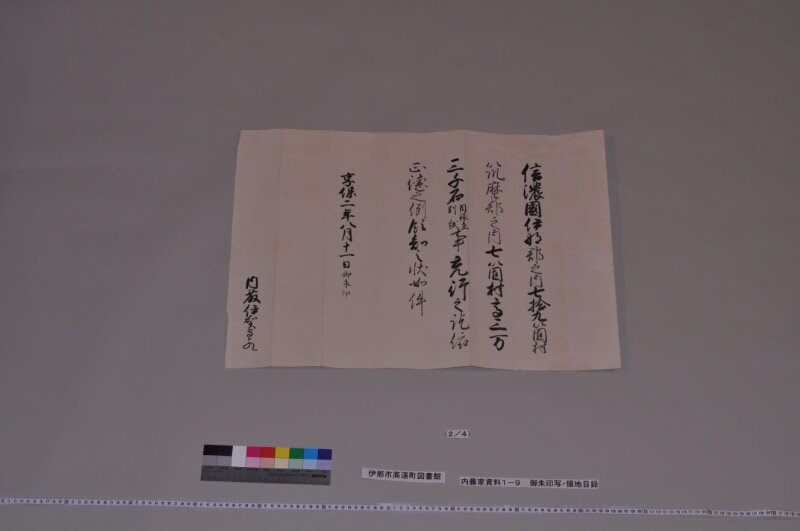 信濃國伊那郡之内七拾九箇村
筑摩郡之内七箇村高三万
三千石目録在別紙事充行之訖依
正徳之例領知之状如件
享保二年八月十一日御朱印
内藤伊賀守とのへ
(2/4)
伊那市高遠町図書館
内藤家資料1-9 御朱印写・領地目録